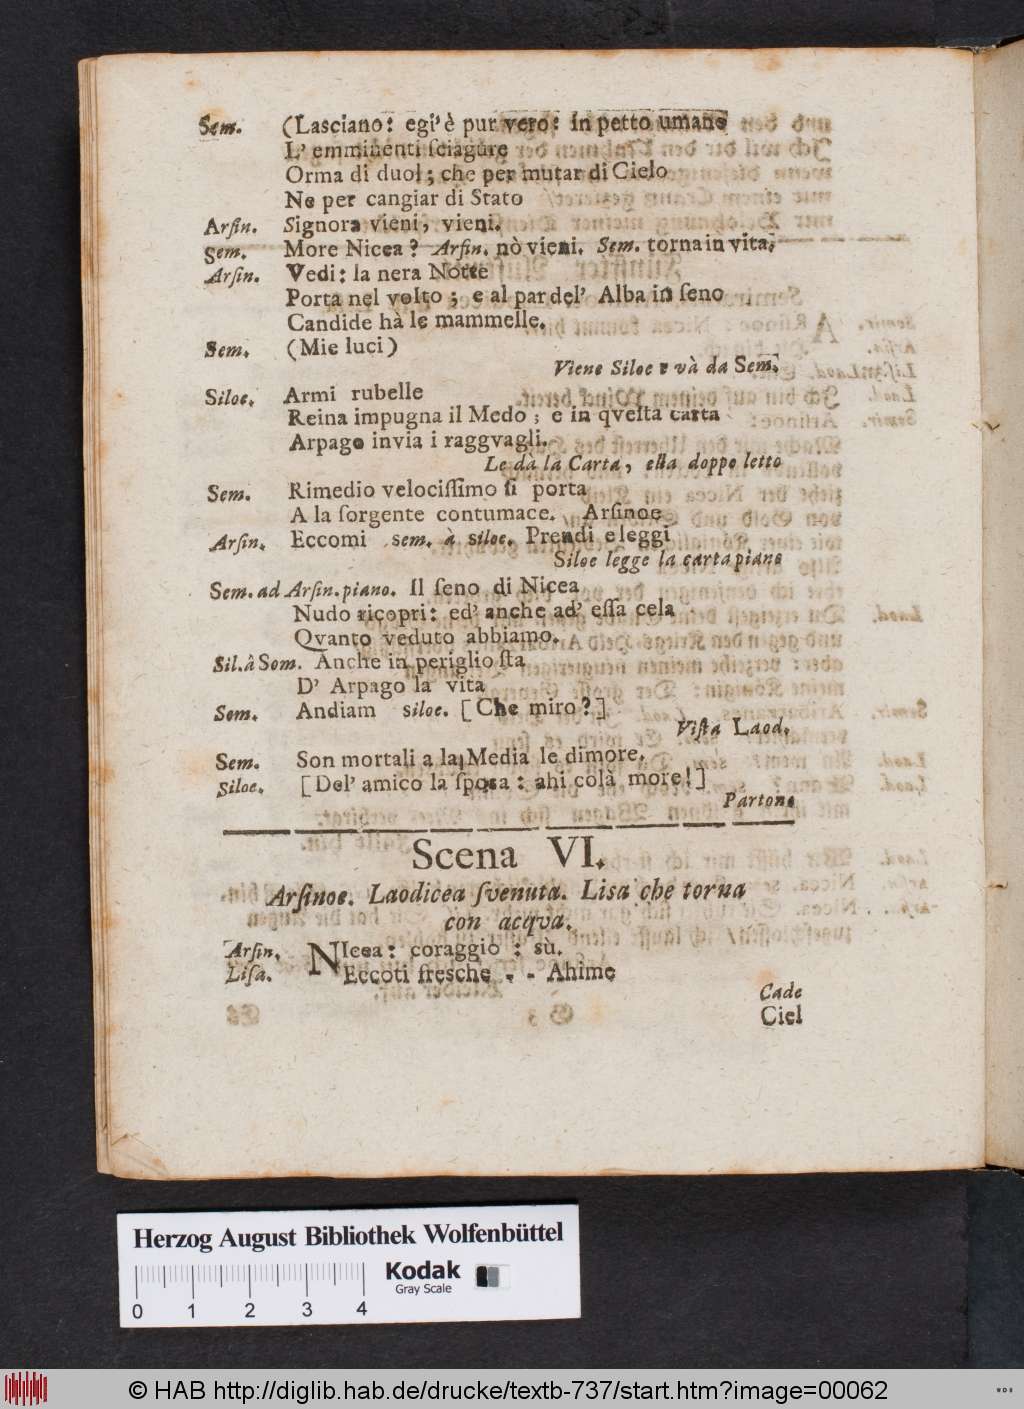 Sem. (Lasciano: egl' è pur vero: in petto umano
L' emminenti ſciagure
Orma di duol; che per mutar di Cielo
Ne per cangiar di Stato
Arſin. Signora vieni, vieni.
Sem. More Nicea? Arſin. nò vieni. Sem. torna in vita.
Arſin. Vedi: la nera Notte
Porta nel volto; e al par del' Alba in ſeno
Candide hà le mammelle.
Sem. (Mie luci)
Viene Siloe e và da Sem.
Siloe. Armi rubelle
Reina impugna il Medo; e in qveſta carta
Arpago invia i raggvagli.
Le dà la Carta, ella doppo letto
Sem. Rimedio velociſſimo ſi porta
A la ſorgente contumace. Arſinoe
Arſin. Eccomi sem. à siloe. Prendi e leggi
Siloe legge la carta piano
Sem. ad Arſin. piano. Il ſeno di Nicea
Nudo ricopri: ed' anche ad' eſſa cela
Qvanto veduto abbiamo.
Sil. à Sem. Anche in periglio ſta
D' Arpago la vita
Sem. Andiam siloe. [Che miro?]
Viſta Laod.
Sem. Son mortali a la Media le dimore.
Siloe. [Del' amico la ſpoſa: ahi colà more!]
Partono
Scena VI.
Arſinoe. Laodicea ſvenuta. Liſa che torna
con acqva.
Arſin. NIcea: coraggiò: sù.
Liſa. Eccoti freſche - - Ahime
Cade
Ciel
Herzog August Bibliothek Wolfenbüttel
Kodak
Gray Scale
0 1 2 3 4
© HAB http://diglib.hab.de/drucke/textb-737/start.htm?image=00062